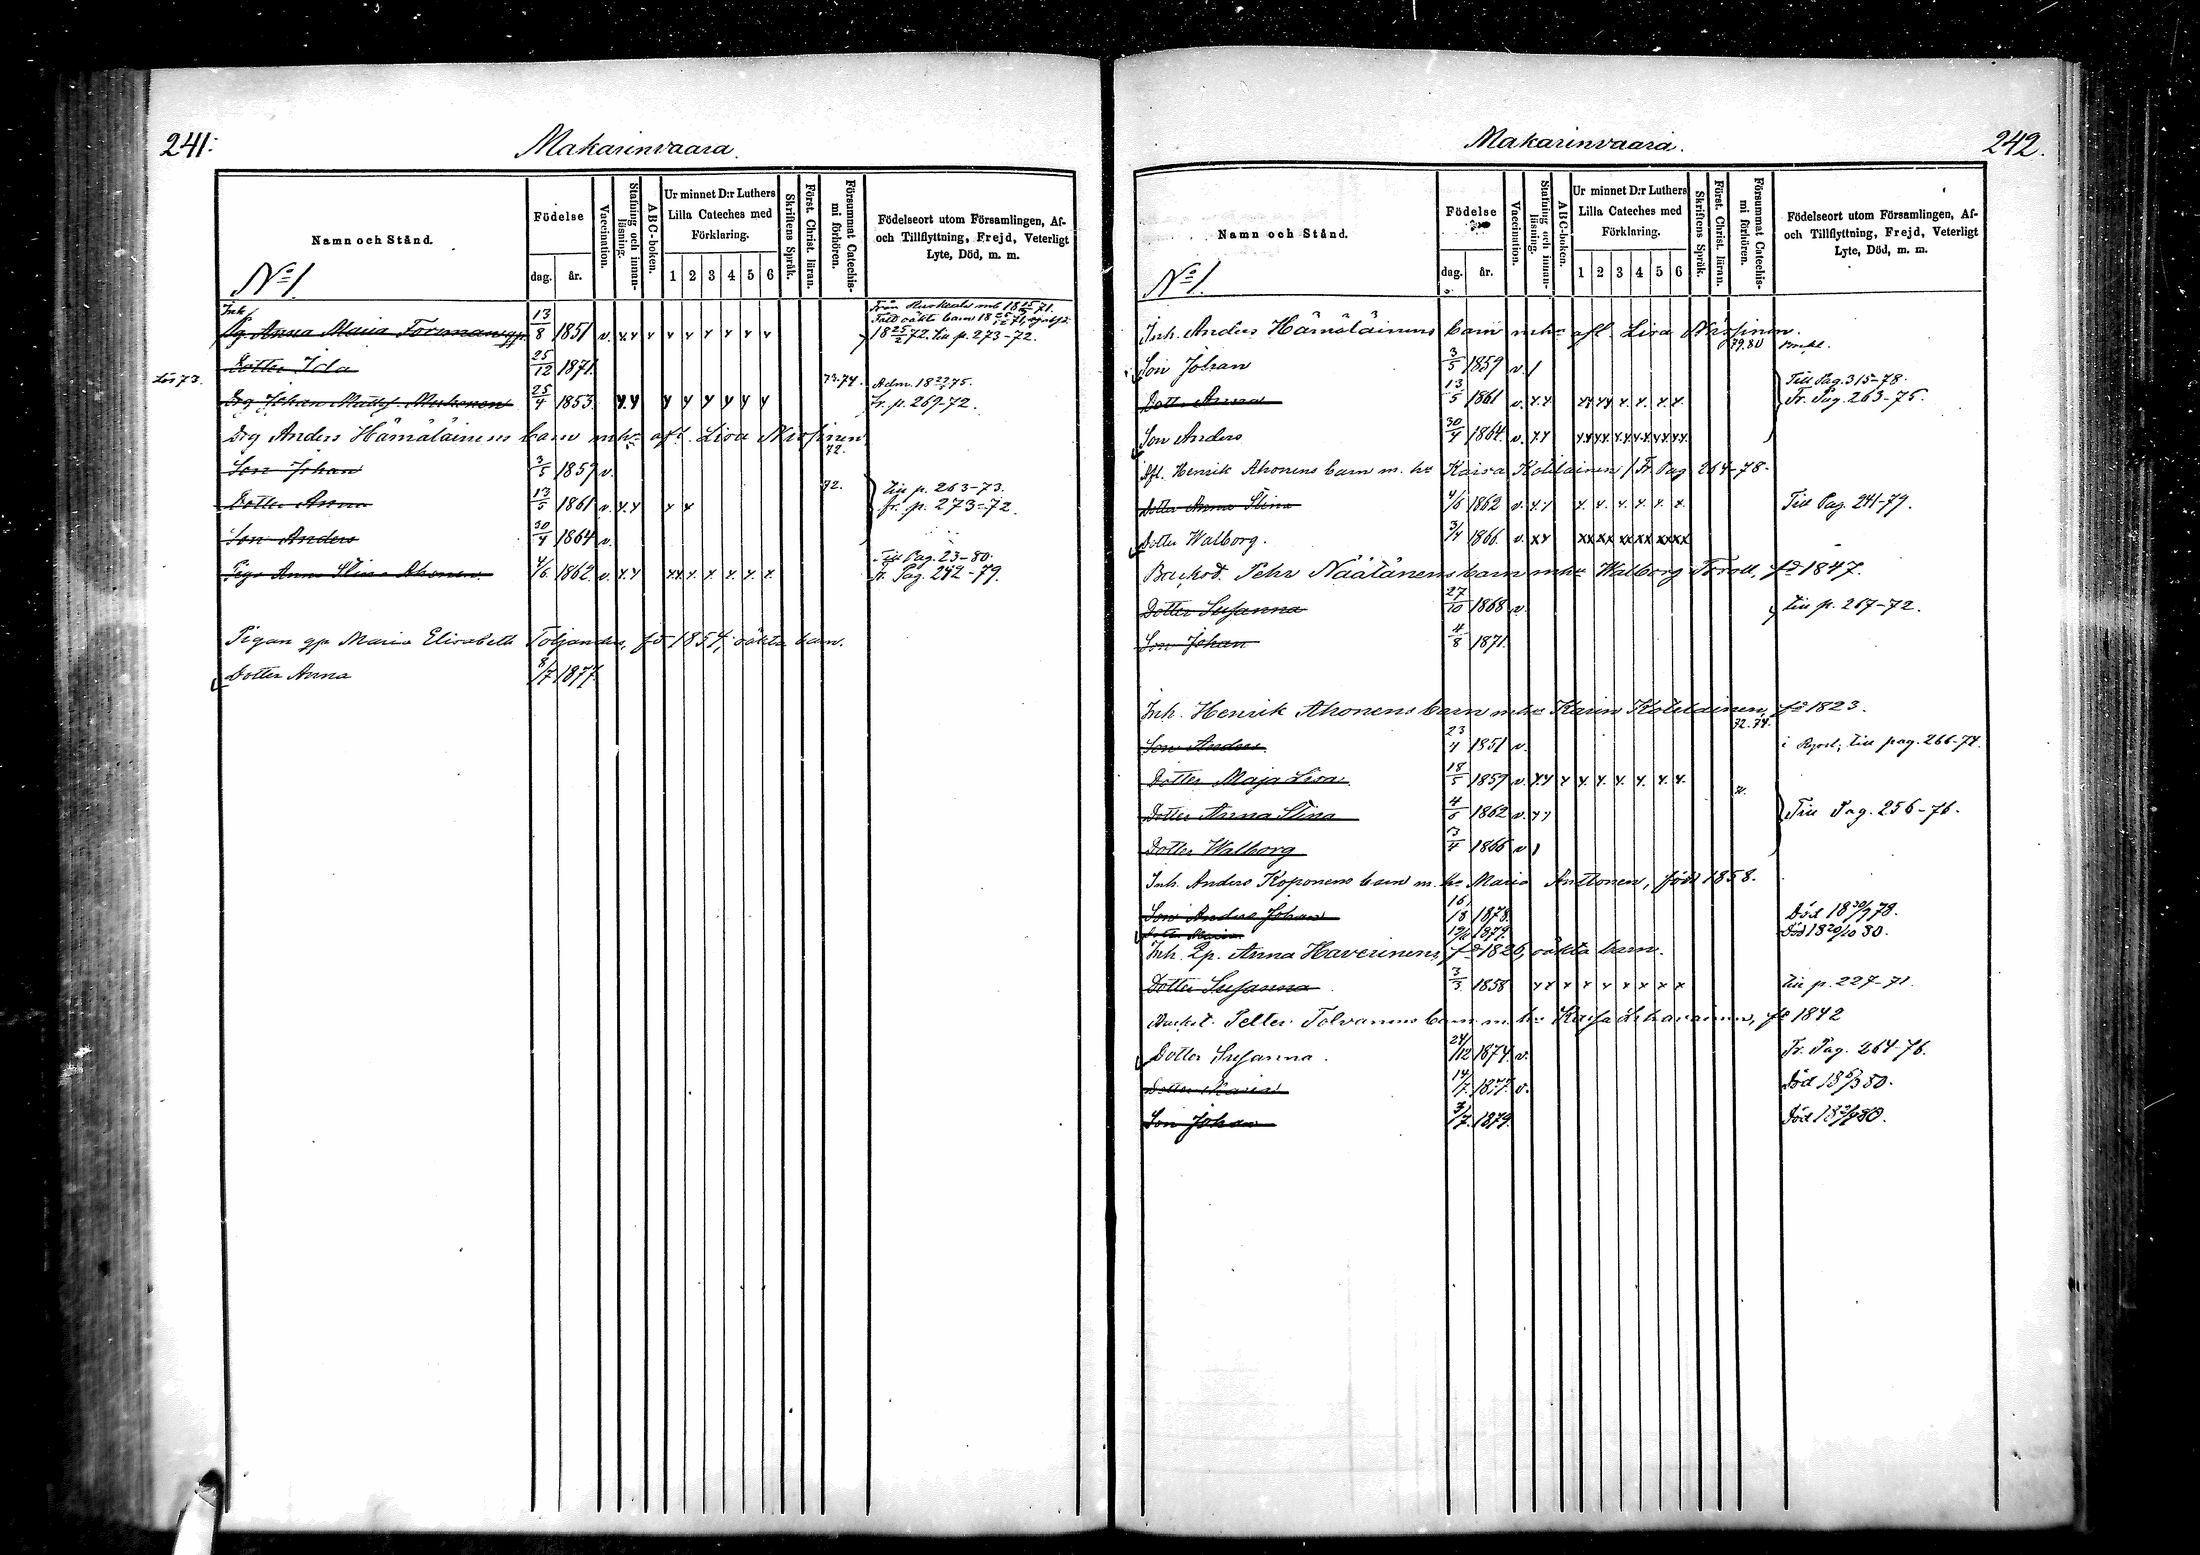 241.
Makarinvaara.
Namn och Stånd.
Födelse
dag. år.
Vaccination.
Stafning och innan-läsning.
ABC-boken.
Ur minnet D:r Luthers
Lilla Cateches med
Förklaring.
1 2 3 4 5 6
Skriftens Språk.
Först. Christ. läran.
Försummat Catechis-mi förhören.
Födelseort utom Församlingen, Af-
och Tillflyttning, Frejd, Veterligt
Lyte, Död, m. m.
No 1.
Inh.
Pig. Anna Maria Forsman qp. 13/8 1851 v. x x x x x x x x x 18 25/2 72. till p. 273-72.
Dotter Ida 25/12 1871.
Lös 73.
73.74. Adm. 18 75.
Drg Johan Matts. Muhonen 25/4 1853 x x x x x x x x fr. p. 269-72.
Drg Anders Hämäläinens barn mhu afl. Lisa
72.
Son Johan 3/5 1859 v.
Dotter Anna 13/5 1861 v. x x x x 72. till p. 263-73.
fr. p. 273-72.
Son Anders 30/4 1864 v.
Till Pag. 23-80.
Piga Anna Stina Ahonen 4/6 1862 v. x x xx x x x x x fr. Pag. 242-79.
Pigan qp Maria Elisabeth född 1854, oäkta barn.
Dotter Anna 8/7 1877.
242.
Makarinvaara.
Namn och Stånd.
Födelse
dag. år.
Vaccination.
Stafning och innan-läsning.
ABC-boken.
Ur minnet D:r Luthers
Lilla Cateches med
Förklaring.
1 2 3 4 5 6
Skriftens Språk.
Först. Christ. läran.
Försummat Catechis-mi förhören.
Födelseort utom Församlingen, Af-
och Tillflyttning, Frejd, Veterligt
Lyte, Död, m. m.
No 1.
Inh. Anders Hämäläinens barn mhu afl. Lisa
79.80
Son Johan 3/5 1859 v.
Till Pag. 315-78.
Dotter Anna 13/5 1861 v. x x xx xx x. x. x. x. Fr. Pag. 263-75.
Son Anders 30/4 1864 v. x x xx xx xx xx xx xx
Afl. Henrik Ahonens barn m. hu Kaisa Kotilainen / Fr. Pag 264-78.
Dotter Anna Stina 4/6 1862 v. x x x. x. x. x. x. x. Till Pag. 241-79.
Dotter Walborg. 3/4 1866 v. x x xx xx xx xx xx xx
Backod. Pehr Näätänens barn mhu Walborg fd 1847.
Dotter Susanna 27/10 1868 v. till p. 267-72.
Son Johan 4/8 1871.
Inh. Henrik Ahonens barn mhu Karin Kotilainen, fd 1823.
72.74.
Son Anders 23/4 1851 v. till pag. 266-74.
Dotter Maja Lisa 18/5 1859 v. x x x x. x. x. x. x. x.
Dotter Anna Stina 4/6 1862 v. x x Till Pag. 256-76.
Dotter Walborg 3/4 1866 v
Inh. Anders Koponens barn m. hu Maria Anttonen, född 1858.
Son Anders Johan 16/8 1878. Död 18 30/9 78.
Dotter Maria 1879. Död 18 20/10 80.
Inh. Qp. Anna Haverinens, fd 1826, oäkta barn.
Dotter Susanna 3/3 1858 x x x x x x x x x till p. 227-71.
Backst. Petter Tolvanens barn m. hu Kaisa fd 1842
Dotter Susanna. 24/12 1874. v. Fr. Pag. 264-76.
Dotter Maria 14/7 1877. v. Död 18 80.
Son Johan 3/7 1879. Död 18 80.